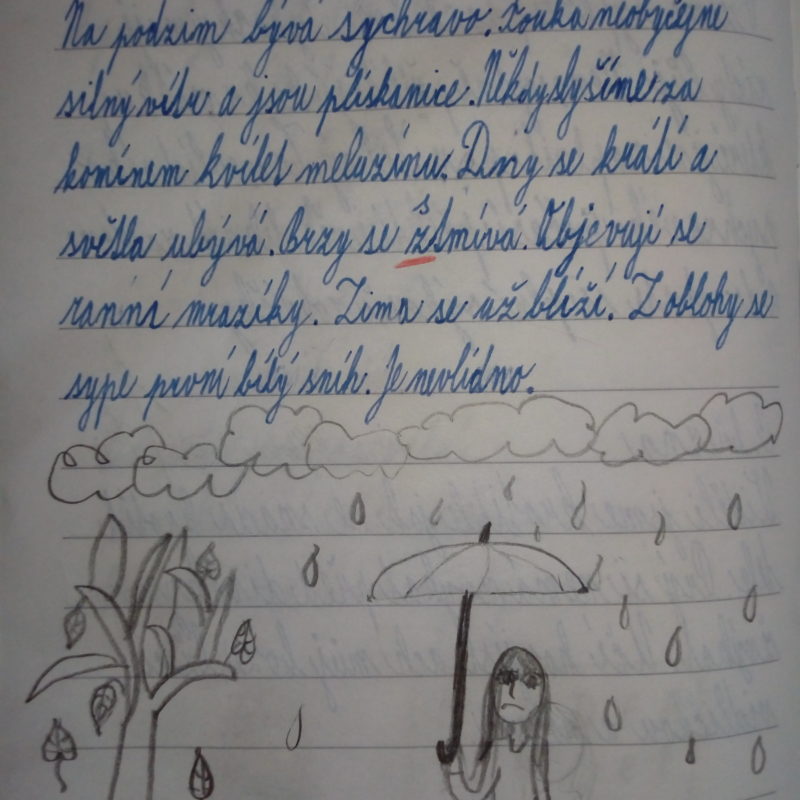 Na podzim bývá sychravo. Fouká neobyčejně
silný vítr a jsou plískanice. Někdy slyšíme za
komínem kvílet meluzínu. Dny se krátí a
světla ubývá. Brzy se stmívá. Objevují se
ranní mrazíky. Zima se už blíží. Z oblohy se
sype první bílý sníh. Je nevlídno.